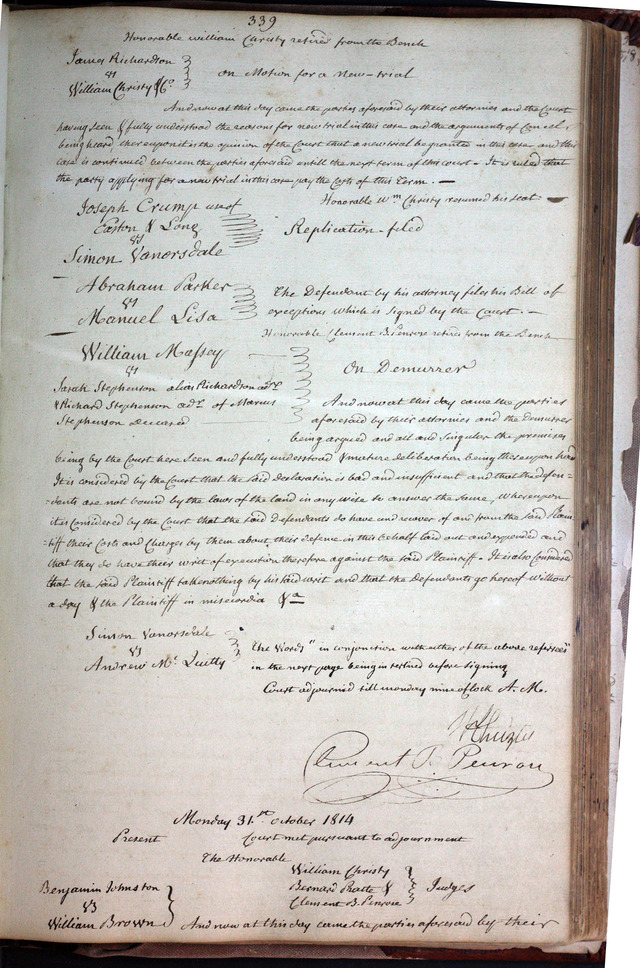 339
Honorable William Christy retired from the Bench
James Richardson
vs
William Christy & Co.
on Motion for a new-trial
And now at this day came the parties aforesaid by their attornies and the Court
having seen & fully understood the reasons for new trial in this case and the arguments of Councel,
being heard thereupon it is the opinion of the Court that a new trial be granted in this case and this
case is continued between the parties aforesaid untill the next term of this court - It is ruled that
the party applying for a new trial in this case pay the Costs of this Term. -
Honorable Wm Christy resumed his seat -
Joseph Crump use of
Easton & Long
vs
Simon Vanorsdale
Replication - filed
Abraham Parker
vs
Manuel Lisa
The Defendant by his attorney files his Bill of
exceptions which is signed by the Court. -
Honorable Clement B. Penrose retires from the Bench
William Massey
vs
Sarah Stephenson alias Richardson adrx
& Richard Stephenson adr. of Marcus
Stephenson deceased
On Demurrer
And now at this day came the parties
aforesaid by their attornies and the demurrer
being argued and all and singular the premises
being by the Court here seen and fully understood & mature deliberation being thereupon had
It is considered by the Court that the said Declaration is bad and insufficient and that the defen-
-dents are not bound by the laws of the land in any wise to answer the same, whereupon
it is considered by the Court that the said Defendants do have and recover of and from the said Plain
tiff their Costs and Charges by them about their defence in this behalf laid out and expended and
that they do have their writ of execution therefore against the said Plaintiff - It is also Considered
that the said Plaintiff take nothing by his said writ and that the Defendants go hereof without
a day & the Plaintiff in misericordia &a
Simon Vanorsdale
vs
Andrew Mc Quitty
The Words " in conjunction with either of the above referrees"
in the next page being interlined before signing
Court adjourned till monday nine oClock A. M.
Wm Christy
Clement B. Penrose
Monday 31st October 1814
Present Court met pursuant to adjournment
The Honorable
William Christy
Bernard Pratte &
Clement B. Penrose
Judges
Benjamin Johnston
vs
William Brown
And now at this day came the parties aforesaid by their